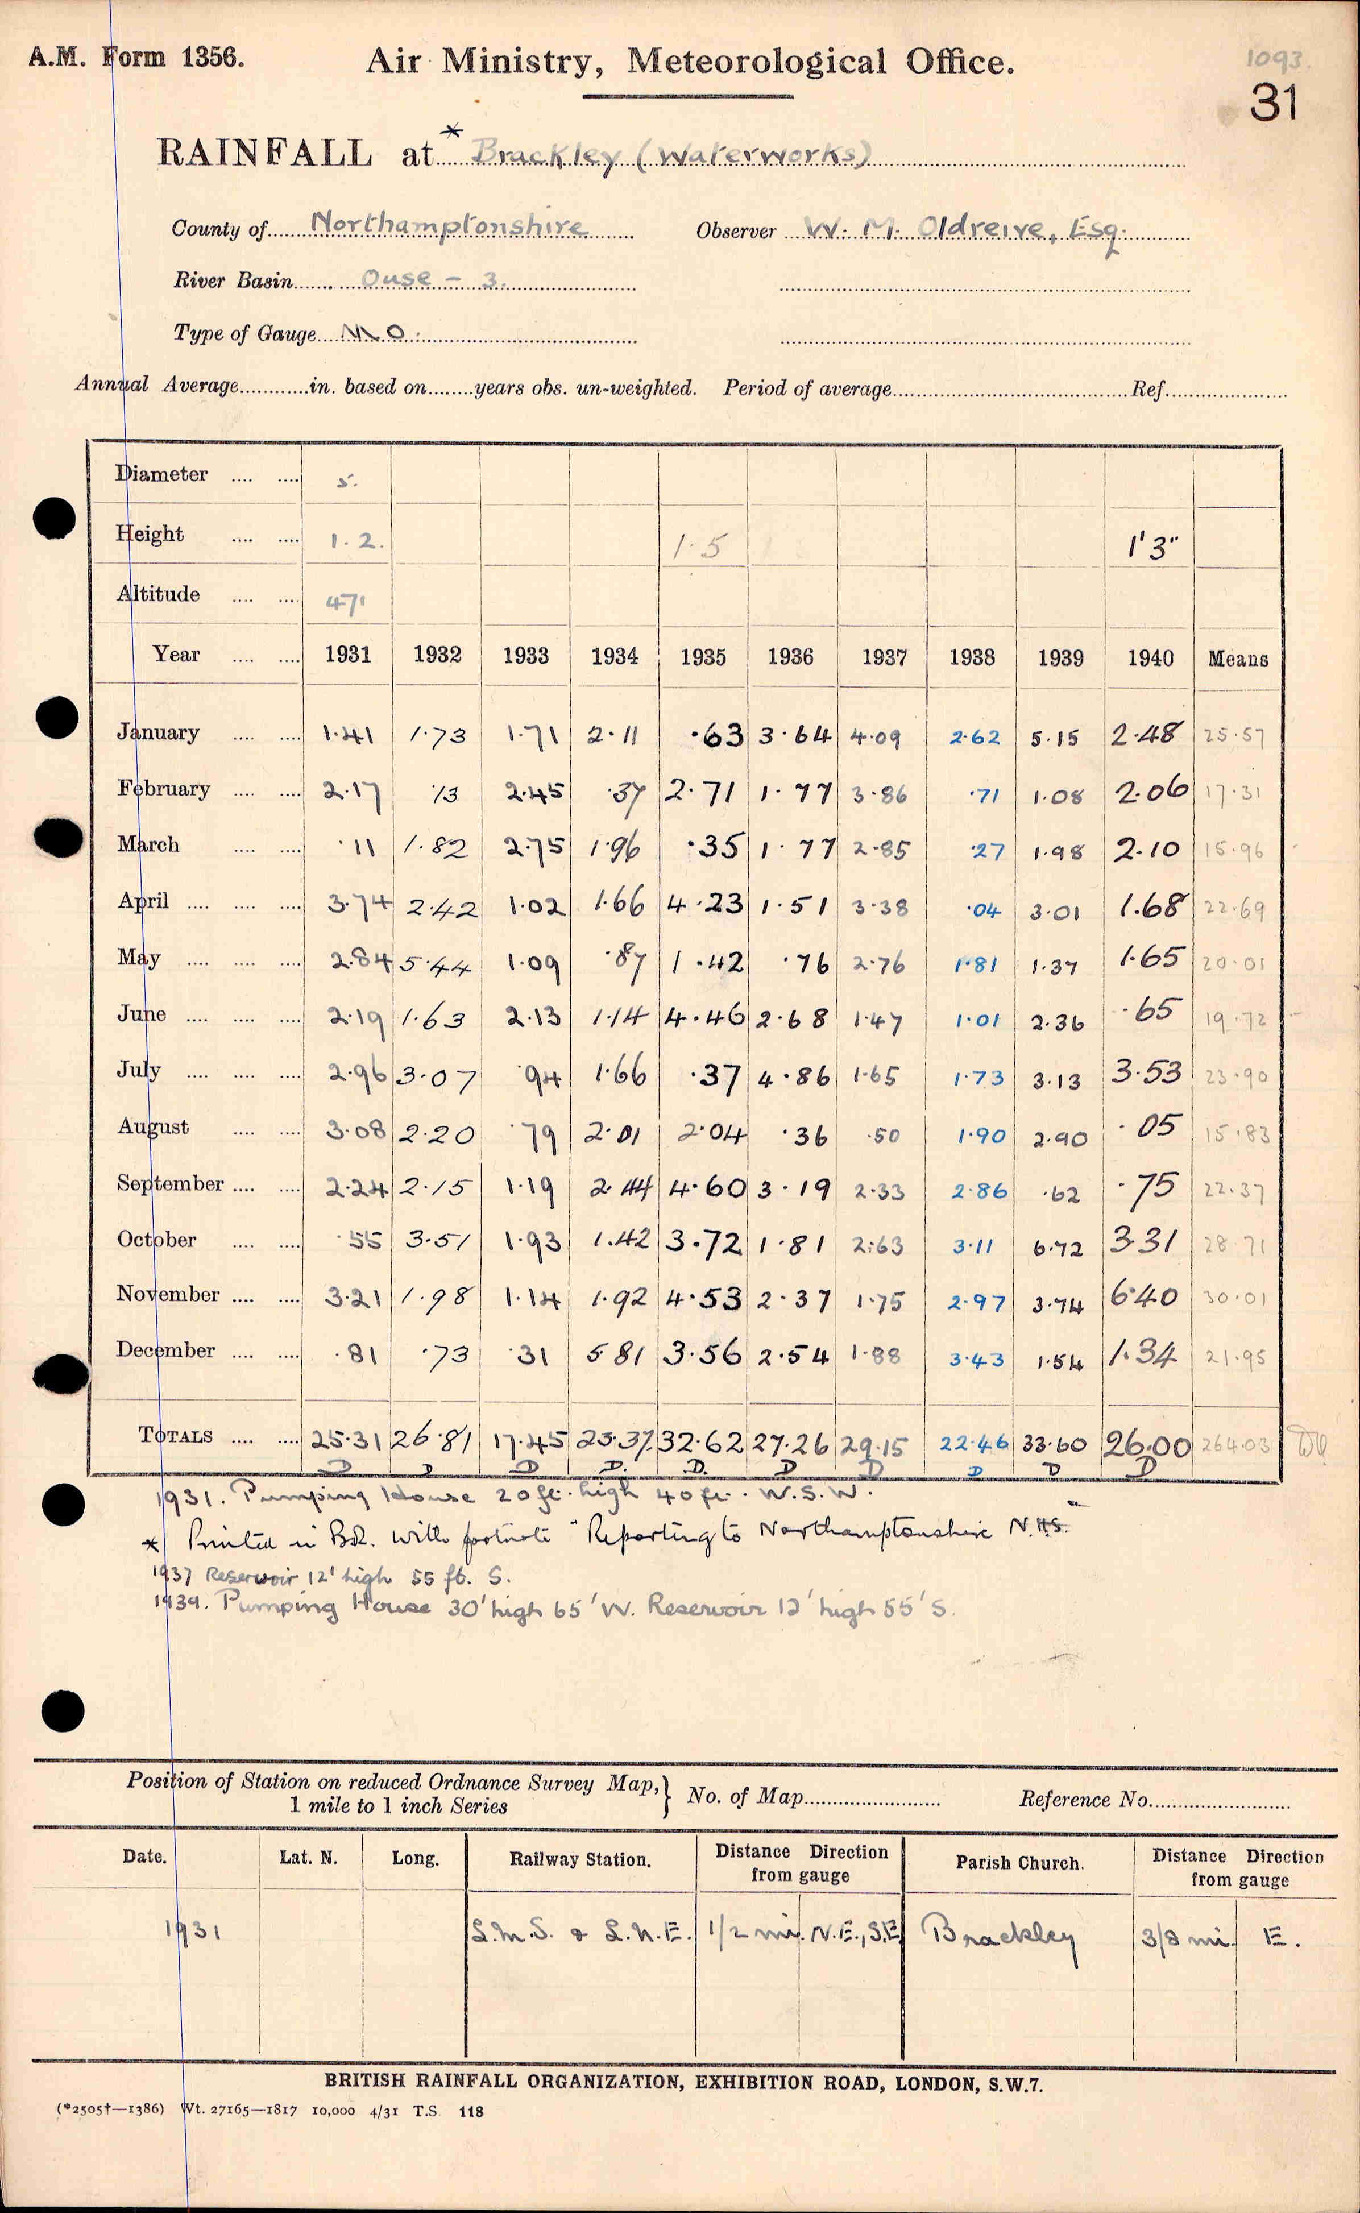 A.M. Form 1356.
Air Ministry, Meteorological Office.
1093.
31
RAINFALL at * Brackley (Waterworks)
County of Northamptonshire Observer W. M. Oldreive, Esq.
River Basin Ouse - 3.
Type of Gauge M O.
Annual Average in. based on years obs. un-weighted. Period of average Ref.
Diameter 5.
Height 1.2. 1.5 1'3"
Altitude 471
Year 1931 1932 1933 1934 1935 1936 1937 1938 1939 1940 Means
January 1.41 1.73 1.71 2.11 .63 3.64 4.09 2.62 5.15 2.48 25.57
February 2.17 .13 2.45 .37 2.71 1.77 3.86 .71 1.08 2.06 17.31
March .11 1.82 2.75 1.96 .35 1.77 2.85 .27 1.98 2.10 15.96
April 3.74 2.42 1.02 1.66 4.23 1.51 3.38 .04 3.01 1.68 22.69
May 2.84 5.44 1.09 .87 1.42 .76 2.76 1.81 1.37 1.65 20.01
June 2.19 1.63 2.13 1.14 4.46 2.68 1.47 1.01 2.36 .65 19.72
July 2.96 3.07 .94 1.66 .37 4.86 1.65 1.73 3.13 3.53 23.90
August 3.08 2.20 .79 2.01 2.04 .36 .50 1.90 2.90 .05 15.83
September 2.24 2.15 1.19 2.44 4.60 3.19 2.33 2.86 .62 .75 22.37
October .55 3.51 1.93 1.42 3.72 1.81 2.63 3.11 6.72 3.31 28.71
November 3.21 1.98 1.14 1.92 4.53 2.37 1.75 2.97 3.74 6.40 30.01
December .81 .73 .31 5.81 3.56 2.54 1.88 3.43 1.54 1.34 21.95
TOTALS 25.31 26.81 17.45 23.37 32.62 27.26 29.15 22.46 33.60 26.00 264.03
D D D D. D. D D D D D
1931. Pumping House 20 ft. high 40 ft. W.S.W.
* Printed in B.R. with footnote "Reporting to Northamptonshire N.H.S."
1937 Reservoir 12' high 55 ft. S.
1939. Pumping House 30' high 65' W. Reservoir 12' high 55' S.
Position of Station on reduced Ordnance Survey Map, } No. of Map Reference No.
1 mile to 1 inch Series
Date. Lat. N. Long. Railway Station. Distance Direction from gauge Parish Church. Distance Direction from gauge
1931 L.M.S. & L.N.E. 1/2 mi. N.E., S.E. Brackley 3/8 mi. E.
BRITISH RAINFALL ORGANIZATION, EXHIBITION ROAD, LONDON, S.W.7.
(*2505†—1386) Wt. 27165—1817 10,000 4/31 T.S. 118